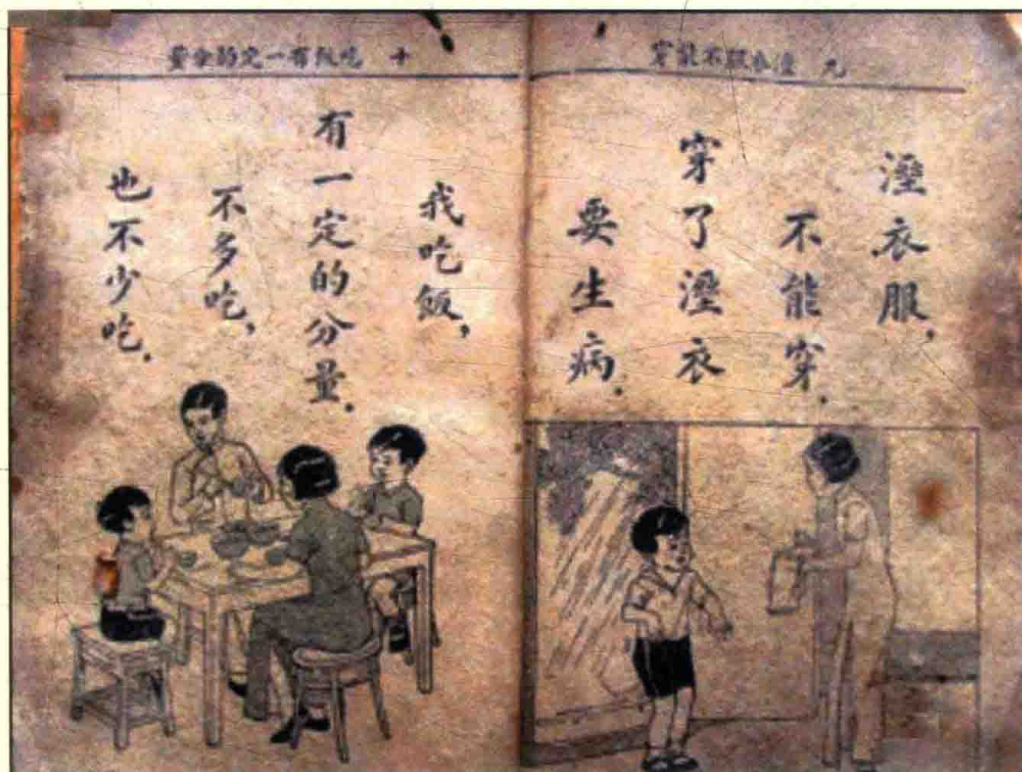 九 溼衣服不能穿
溼衣服，
不能穿．
穿了溼衣
要生病．
十 吃飯有一定的分量
我吃飯，
有一定的分量．
不多吃，
也不少吃．